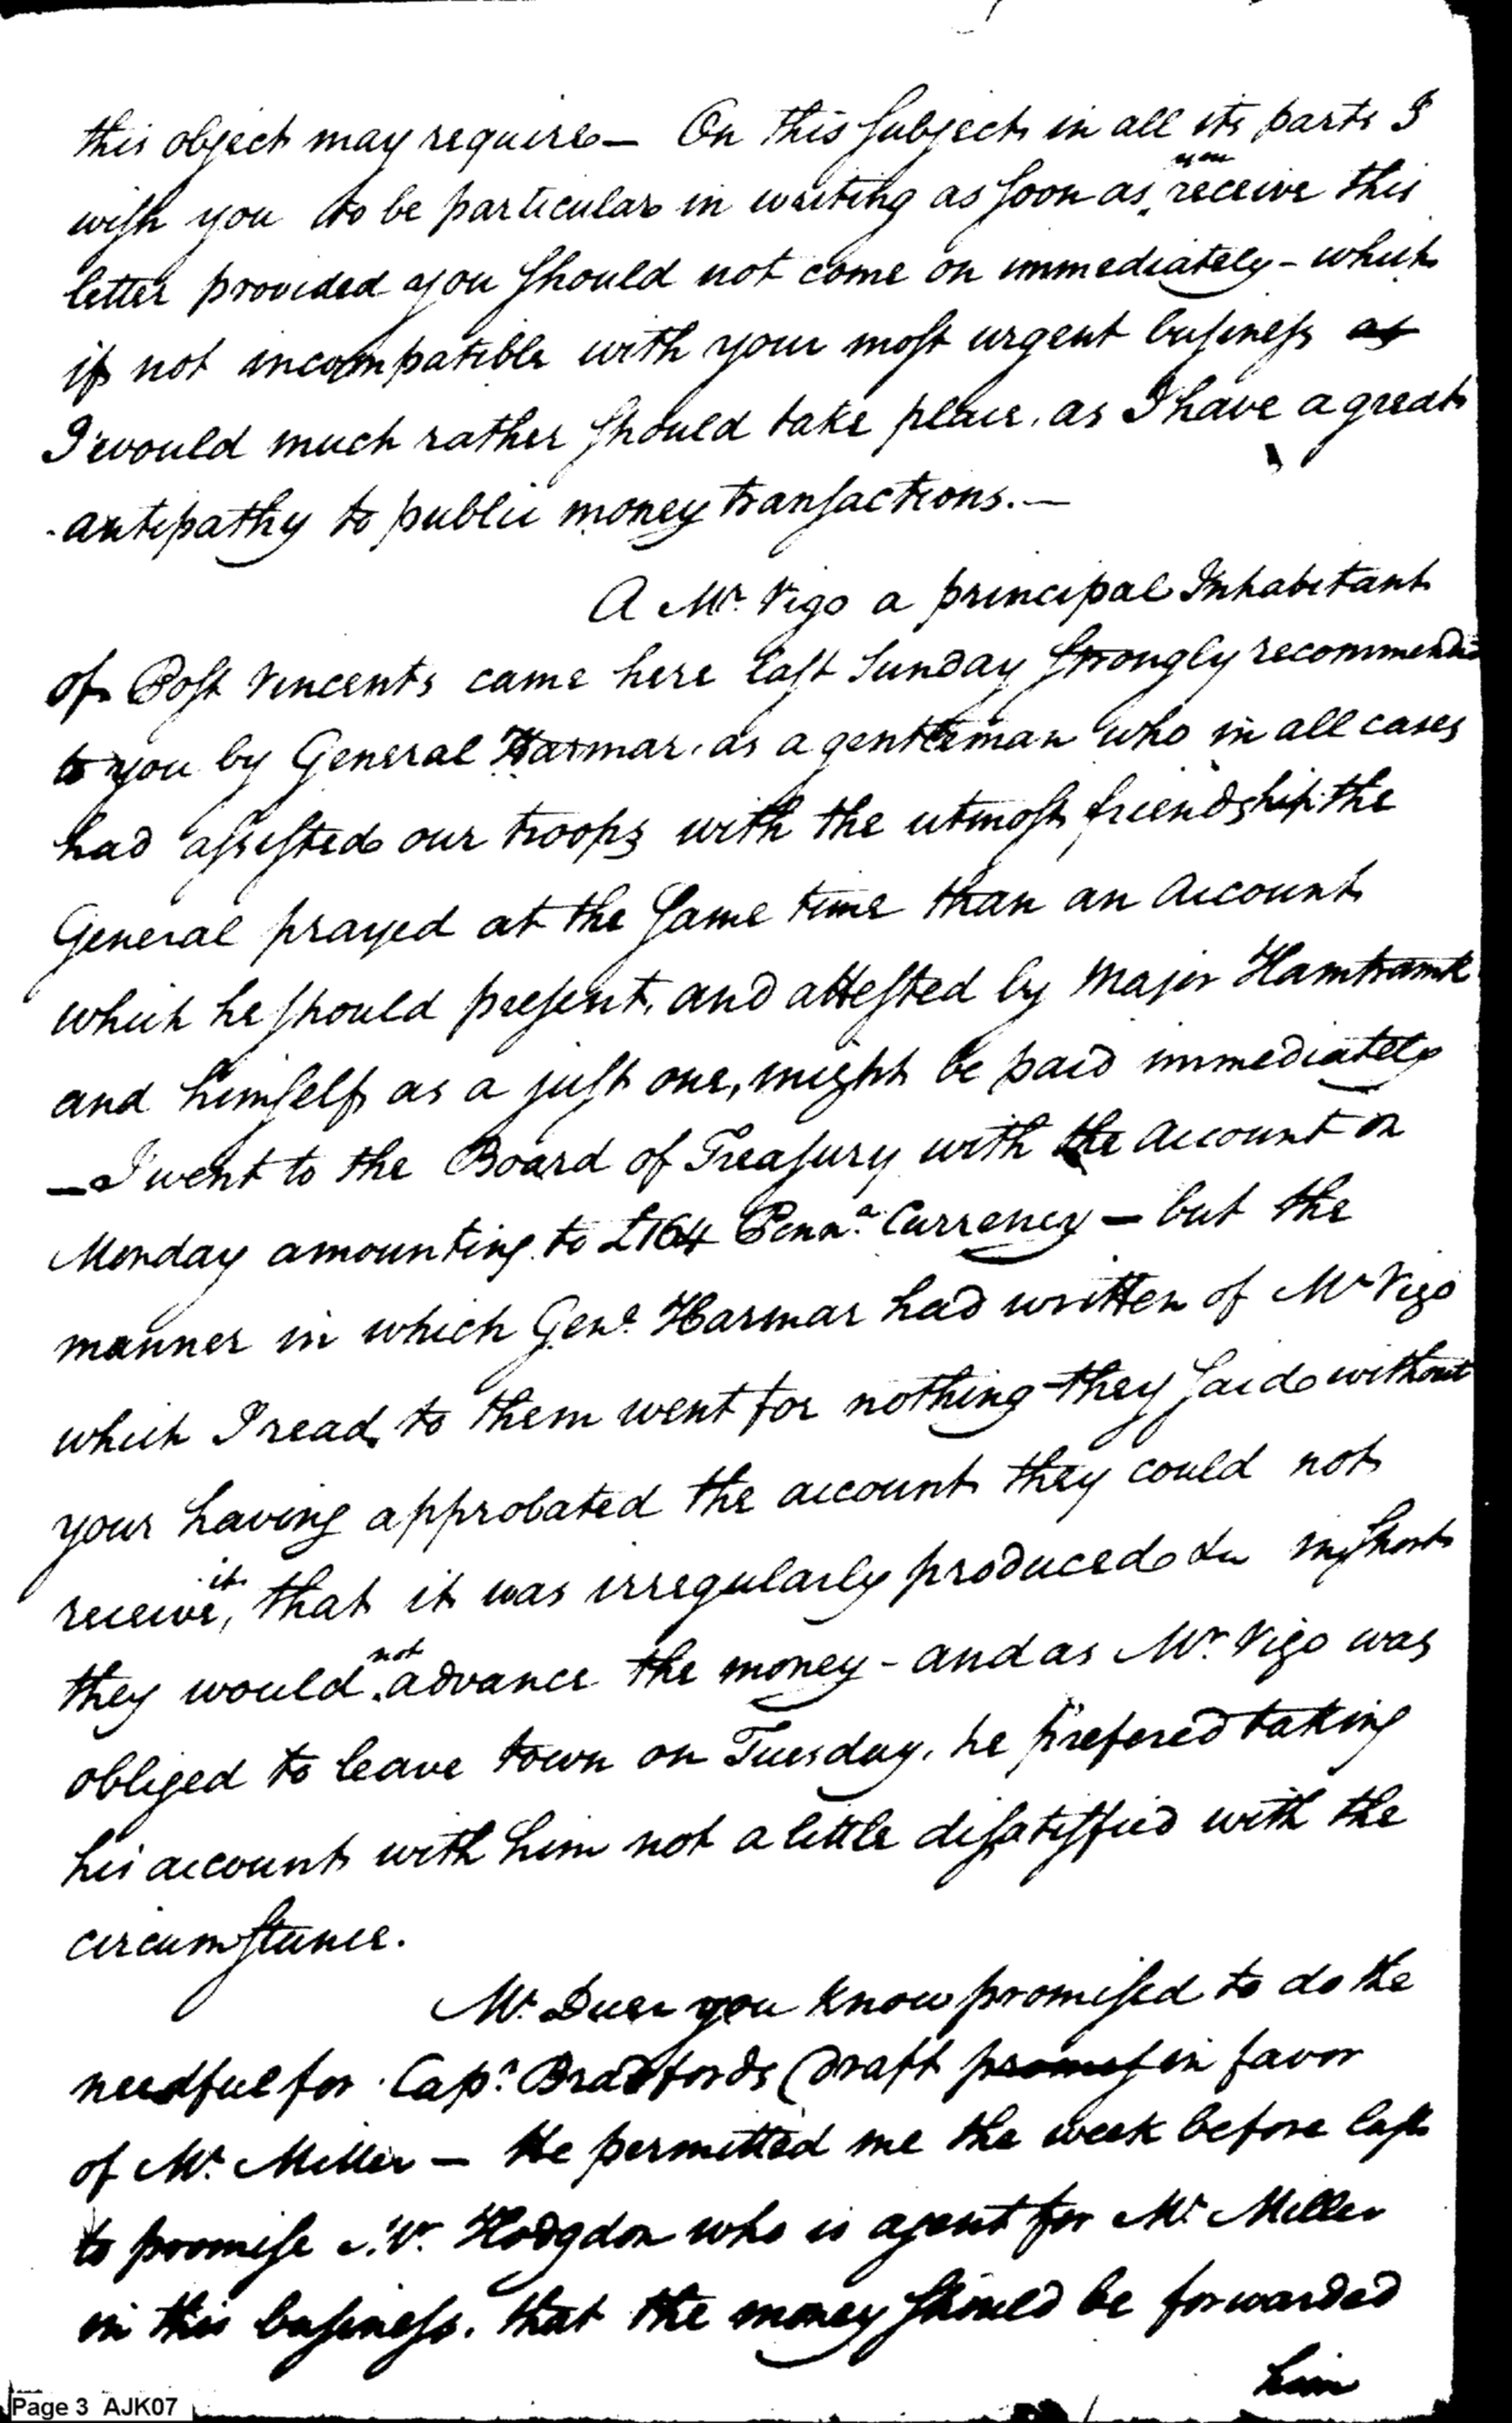 this object may require — On this subject in all its parts I
wish you to be particular in writing as soon as you receive this
letter provided you should not come on immediately - which
if not incompatible with your most urgent business as
I would much rather should take place, as I have a great
antipathy to public money transactions. —
A Mr. Vigo a principal Inhabitant
of Post Vincents came here last Sunday strongly recommended
to you by General Harmar, as a gentleman who in all cases
had assisted our troops with the utmost friendship. the
General prayed at the same time than an account
which he should present, and attested by Major Hamtramk
and himself as a just one, might be paid immediately
— I went to the Board of Treasury with the account on
Monday amounting to £164 Penna. Currency — but the
manner in which Genl. Harmar had written of Mr Vigo
which I read to them went for nothing - they said without
your having approbated the account they could not
receive it, that it was irregularly produced &c in short
they would not advance the money - and as Mr. Vigo was
obliged to leave town on Tuesday, he prefered taking
his account with him not a little dissatisfied with the
circumstance.
Mr. Duer you know promised to do the
needful for Capn. Bradfords draft in favor
of Mr. Miller — He permitted me the week before last
to promise Mr. Hodgdon who is agent for Mr Miller
in this business, that the money should be forwarded
him
Page 3 AJK07